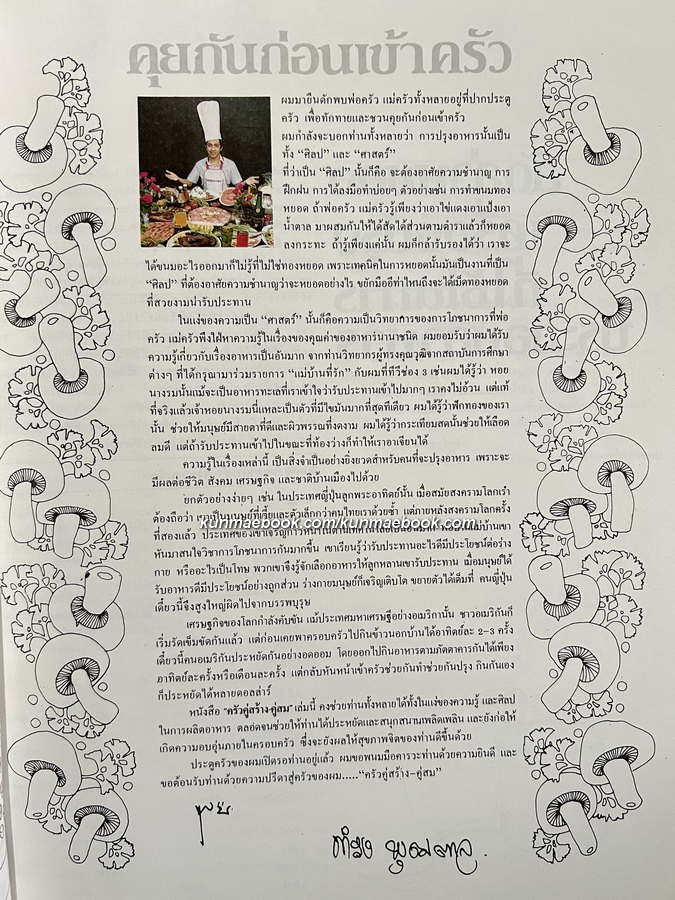 คุยกันก่อนเข้าครัว
ผมมายืนดักพบพ่อครัว แม่ครัวทั้งหลายอยู่ที่ปากประตู
ครัว เพื่อทักทายและชวนคุยกันก่อนเข้าครัว
ผมกำลังจะบอกท่านทั้งหลายว่า การปรุงอาหารนั้นเป็น
ทั้ง “ศิลป” และ “ศาสตร์”
ที่ว่าเป็น “ศิลป” นั้นก็คือ จะต้องอาศัยความชำนาญ การ
ฝึกฝน การได้ลงมือทำบ่อยๆ ตัวอย่างเช่น การทำขนมทอง
หยอด ถ้าพ่อครัว แม่ครัวรู้เพียงว่าเอาไข่แดงเอาแป้งเอา
น้ำตาล มาผสมกันให้ได้สัดได้ส่วนตามตำราแล้วก็หยอด
ลงกระทะ ถ้ารู้เพียงแค่นั้น ผมก็กล้ารับรองได้ว่า เราจะ
ได้ขนมอะไรออกมาก็ไม่รู้ที่ไม่ใช่ทองหยอด เพราะเทคนิคในการหยอดนั้นมันเป็นงานที่เป็น
“ศิลป” ที่ต้องอาศัยความชำนาญว่าจะหยอดอย่างไร ขยักมืออีท่าไหนถึงจะได้เม็ดทองหยอด
ที่สวยงามน่ารับประทาน
ในแง่ของความเป็น “ศาสตร์” นั้นก็คือความเป็นวิทยาการของการโภชนาการที่พ่อ
ครัว แม่ครัวพึงใฝ่หาความรู้ในเรื่องของคุณค่าของอาหารนานาชนิด ผมยอมรับว่าผมได้รับ
ความรู้เกี่ยวกับเรื่องอาหารเป็นอันมาก จากท่านวิทยากรผู้ทรงคุณวุฒิจากสถาบันการศึกษา
ต่างๆ ที่ได้กรุณามาร่วมรายการ “แม่บ้านที่รัก” กับผมที่ทีวีช่อง 3 เช่นผมได้รู้ว่า หอย
นางรมนั้นแม้จะเป็นอาหารทะเลที่เราเข้าใจว่ารับประทานเข้าไปมากๆ เราคงไม่อ้วน แต่แท้
ที่จริงแล้วเจ้าหอยนางรมนี่แหละเป็นตัวที่มีไขมันมากที่สุดทีเดียว ผมได้รู้ว่าฟักทองของเรา
นั้น ช่วยให้มนุษย์มีสายตาที่ดีและผิวพรรณที่งดงาม ผมได้รู้ว่ากระเทียมสดนั้นช่วยให้เลือด
ลมดี แต่ถ้ารับประทานเข้าไปในขณะที่ท้องว่างก็ทำให้เราอาเจียนได้
ความรู้ในเรื่องเหล่านี้ เป็นสิ่งจำเป็นอย่างยิ่งยวดสำหรับคนที่จะปรุงอาหาร เพราะจะ
มีผลต่อชีวิต สังคม เศรษฐกิจ และชาติบ้านเมืองไปด้วย
ยกตัวอย่างง่ายๆ เช่น ในประเทศญี่ปุ่นลูกพระอาทิตย์นั้น เมื่อสมัยสงครามโลกเรา
ต้องถือว่า เขาเป็นมนุษย์ที่เตี้ยและตัวเล็กกว่าคนไทยเราด้วยซ้ำ แต่ภายหลังสงครามโลกครั้ง
kunmaebook.com/kunmaebook.com
ที่สองแล้ว ประเทศของเขาเจริญก้าวหน้า แม่บ้านเขา
หันมาสนใจวิชาการโภชนาการกันมากขึ้น เขาเรียนรู้ว่ารับประทานอะไรดีมีประโยชน์ต่อร่าง
กาย หรืออะไรเป็นโทษ พวกเขาจึงรู้จักเลือกอาหารให้ลูกหลานเขารับประทาน เมื่อมนุษย์ได้
รับอาหารดีมีประโยชน์อย่างถูกส่วน ร่างกายมนุษย์ก็เจริญเติบโต ขยายตัวได้เต็มที่ คนญี่ปุ่น
เดี๋ยวนี้จึงสูงใหญ่ผิดไปจากบรรพบุรุษ
เศรษฐกิจของโลกกำลังคับขัน แม้ประเทศมหาเศรษฐีอย่างอเมริกานั้น ชาวอเมริกันก็
เริ่มรัดเข็มขัดกันแล้ว แต่ก่อนเคยพาครอบครัวไปกินข้าวนอกบ้านได้อาทิตย์ละ 2-3 ครั้ง
เดี๋ยวนี้คนอเมริกันประหยัดกันอย่างอดออม โดยออกไปกินอาหารตามภัตตาคารกันได้เพียง
อาทิตย์ละครั้งหรือเดือนละครั้ง แต่กลับหันหน้าเข้าครัวช่วยกันทำช่วยกันปรุง กินกันเอง
ก็ประหยัดได้หลายดอลล่าร์
หนังสือ “ครัวคู่สร้าง-คู่สม” เล่มนี้ คงช่วยท่านทั้งหลายได้ทั้งในแง่ของความรู้ และศิลป
ในการผลิตอาหาร ตลอดจนช่วยให้ท่านได้ประหยัดและสนุกสนานเพลิดเพลิน และยังก่อให้
เกิดความอบอุ่นภายในครอบครัว ซึ่งจะยังผลให้สุขภาพจิตของท่านดีขึ้นด้วย
ประตูครัวของผมเปิดรอท่านอยู่แล้ว ผมขอพนมมือคารวะท่านด้วยความยินดี และ
ขอต้อนรับท่านด้วยความปรีดาสู่ครัวของผม.....“ครัวคู่สร้าง-คู่สม”